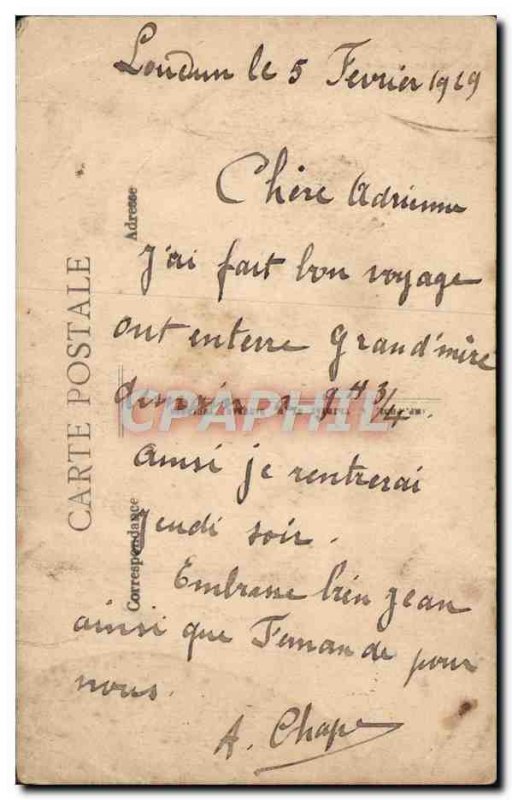 Loudun le 5 Fevrier 1919
Chère Adrienne
J'ai fait bon voyage
ont enterre Grand'mère
demain a 9H 3/4.
ainsi je rentrerai
Jeudi soir.
Embrasse bien Jean
ainsi que Fernande pour
nous.
A. Chape
CARTE POSTALE
Adresse
Correspondance
CPAPHIL